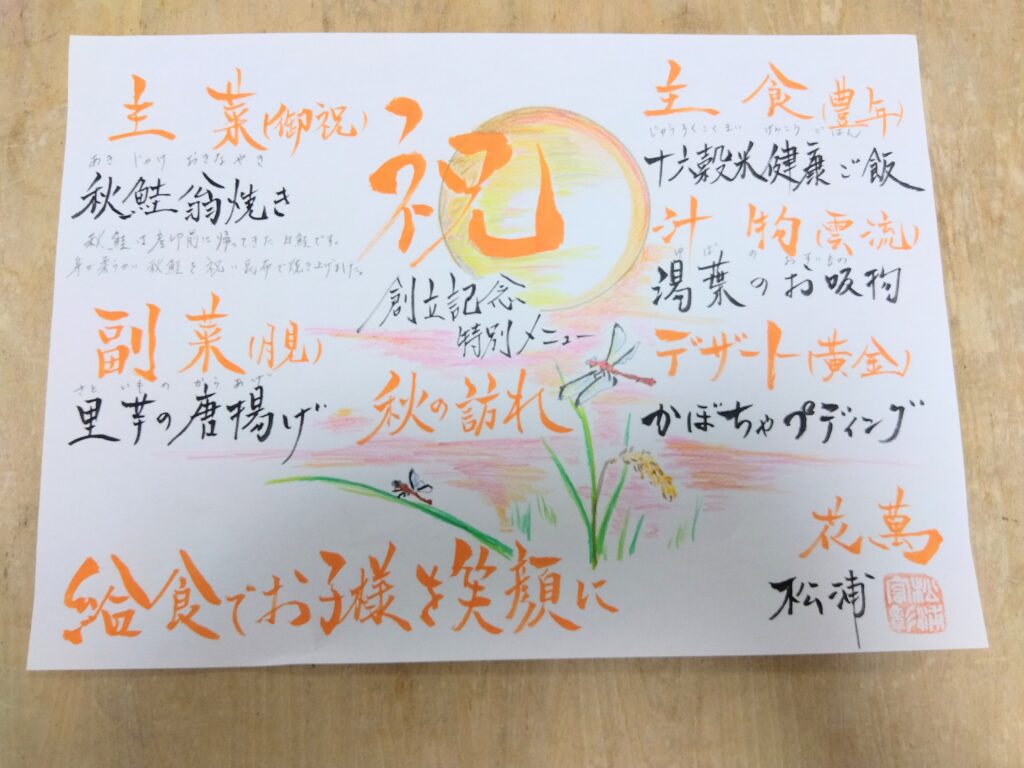 祝
創立記念
特別メニュー
秋の訪れ
主食(豊年)
じゅうろくこくまい けんこう ごはん
十六穀米健康ご飯
汁物(雲流)
ゆば の おすいもの
湯葉のお吸物
デザート(黄金)
かぼちゃプディング
主菜(御祝)
あき じゃけ おきなやき
秋鮭翁焼き
秋鮭は産卵前に帰ってきた白鮭です。
身が柔らかい秋鮭を祝い昆布で焼き上げました。
副菜(月見)
さといものからあげ
里芋の唐揚げ
給食でお子様を笑顔に
花萬
松浦